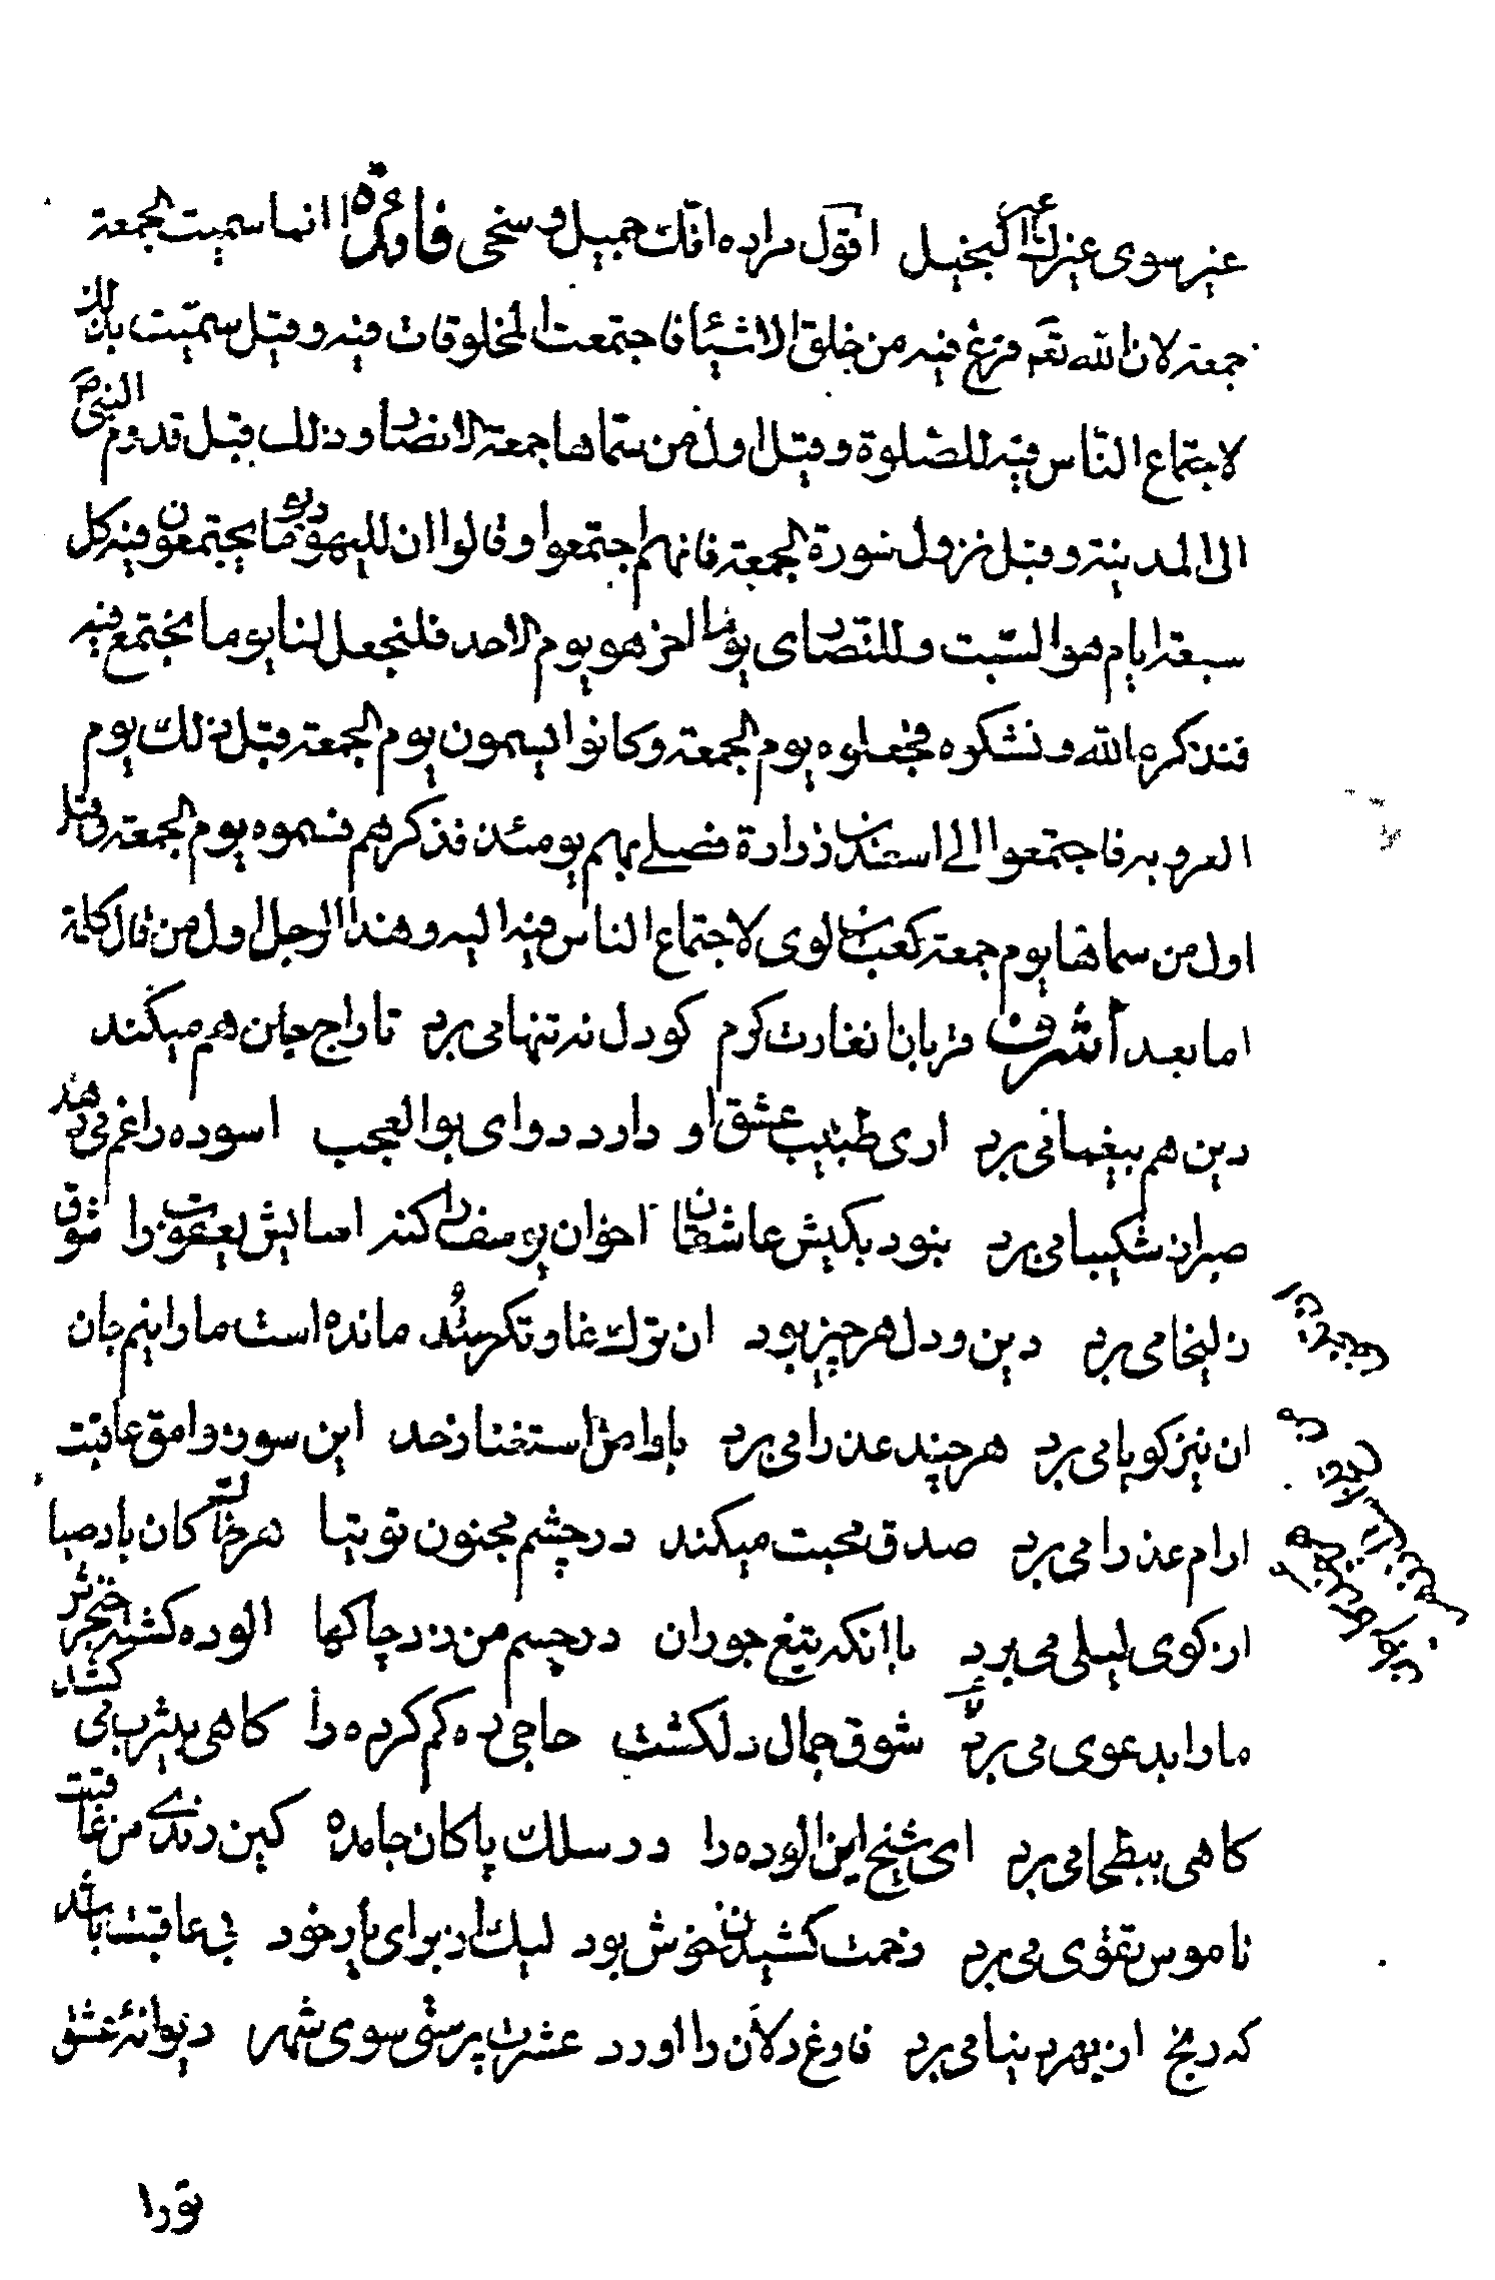 غیر سوی غیرک کالبخیل اقول مراده انّک جمیل و سخی فائدة انما سمیت الجمعة
جمعة لان الله تعالی فرغ فیه من خلق الاشیاء فاجتمعت المخلوقات فیه و قیل سمّیت بذلک
لاجتماع النّاس فیه للصّلوة و قیل اول من سمّاها جمعة الانصار و ذلک قبل قدوم النبی ص
الی المدینة و قبل نزول سورة الجمعة فانهم اجتمعوا و قالوا ان للیهود یوما یجتمعون فیه کل
سبعة ایام هو السّبت و للنّصاری یوما اخر هو یوم الاحد فلنجعل لنا یوما نجتمع فیه
فنذکر الله و نشکره فجعلوه یوم الجمعة و کانوا یسمون یوم الجمعة قبل ذلک یوم
العروبه فاجتمعوا الی اسعد بن زرارة فصلی بهم یومئذ فذکرهم فسموه یوم الجمعة و قیل
اول من سماها یوم جمعة کعب بن لوی لاجتماع الناس فیه الیه و هذا الرجل اول من قال کلمة
اما بعد اشرف قربان غارت کرم کو دل نه تنها می برد تاراج جان هم میکند
دین هم بیغما می برد اری طبیب عشق او دارد دوای بوالعجب اسوده را غم می دهد
صبر از شکیبا می برد بنود بکیش عاشقان اخوان یوسف را کنه اسایش یعقوب را شوق
زلیخا می برد دین و دل هر چیز بود ان ترک غارتکر ستد مانده است ما را نیم جان
ان نیز کویا می برد هر چند عذرا می برد با وامق استغنا ز حد این سوز وامق عاقبت
ارام عذرا می برد صدق محبت میکند در چشم مجنون توتیا هر خاک کان باد صبا
از کوی لیلی می برد با انکه تیغ جور ان در جسم من زد چاکها الوده کشته خنجرش
ما را بدعوی می برد شوق جمال دلکشت حاجی ره کم کرده را کاهی بیثرب می کشد
کاهی ببطحا می برد ای شیخ این الوده را در سلک پاکان جا مده کین رند من عاقبت
ناموس تقوی می برد زحمت کشیدن خوش بود لیک از برای یار خود بی عاقبت باشد
که رنج از بهر دنیا می برد فارغ دلان را اورد عشرت پرستی سوی شهر دیوانهٔ عشق
تو را